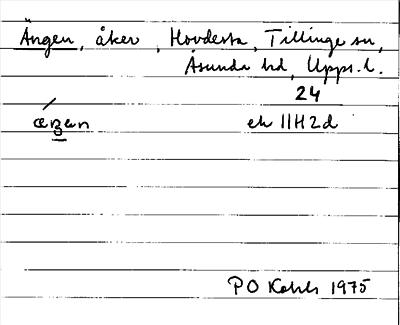 Ängen, åker, Hovdesta, Tillinge sn,
Åsunda hd, Upps. l.
24
ek 11H2d
PO 1975